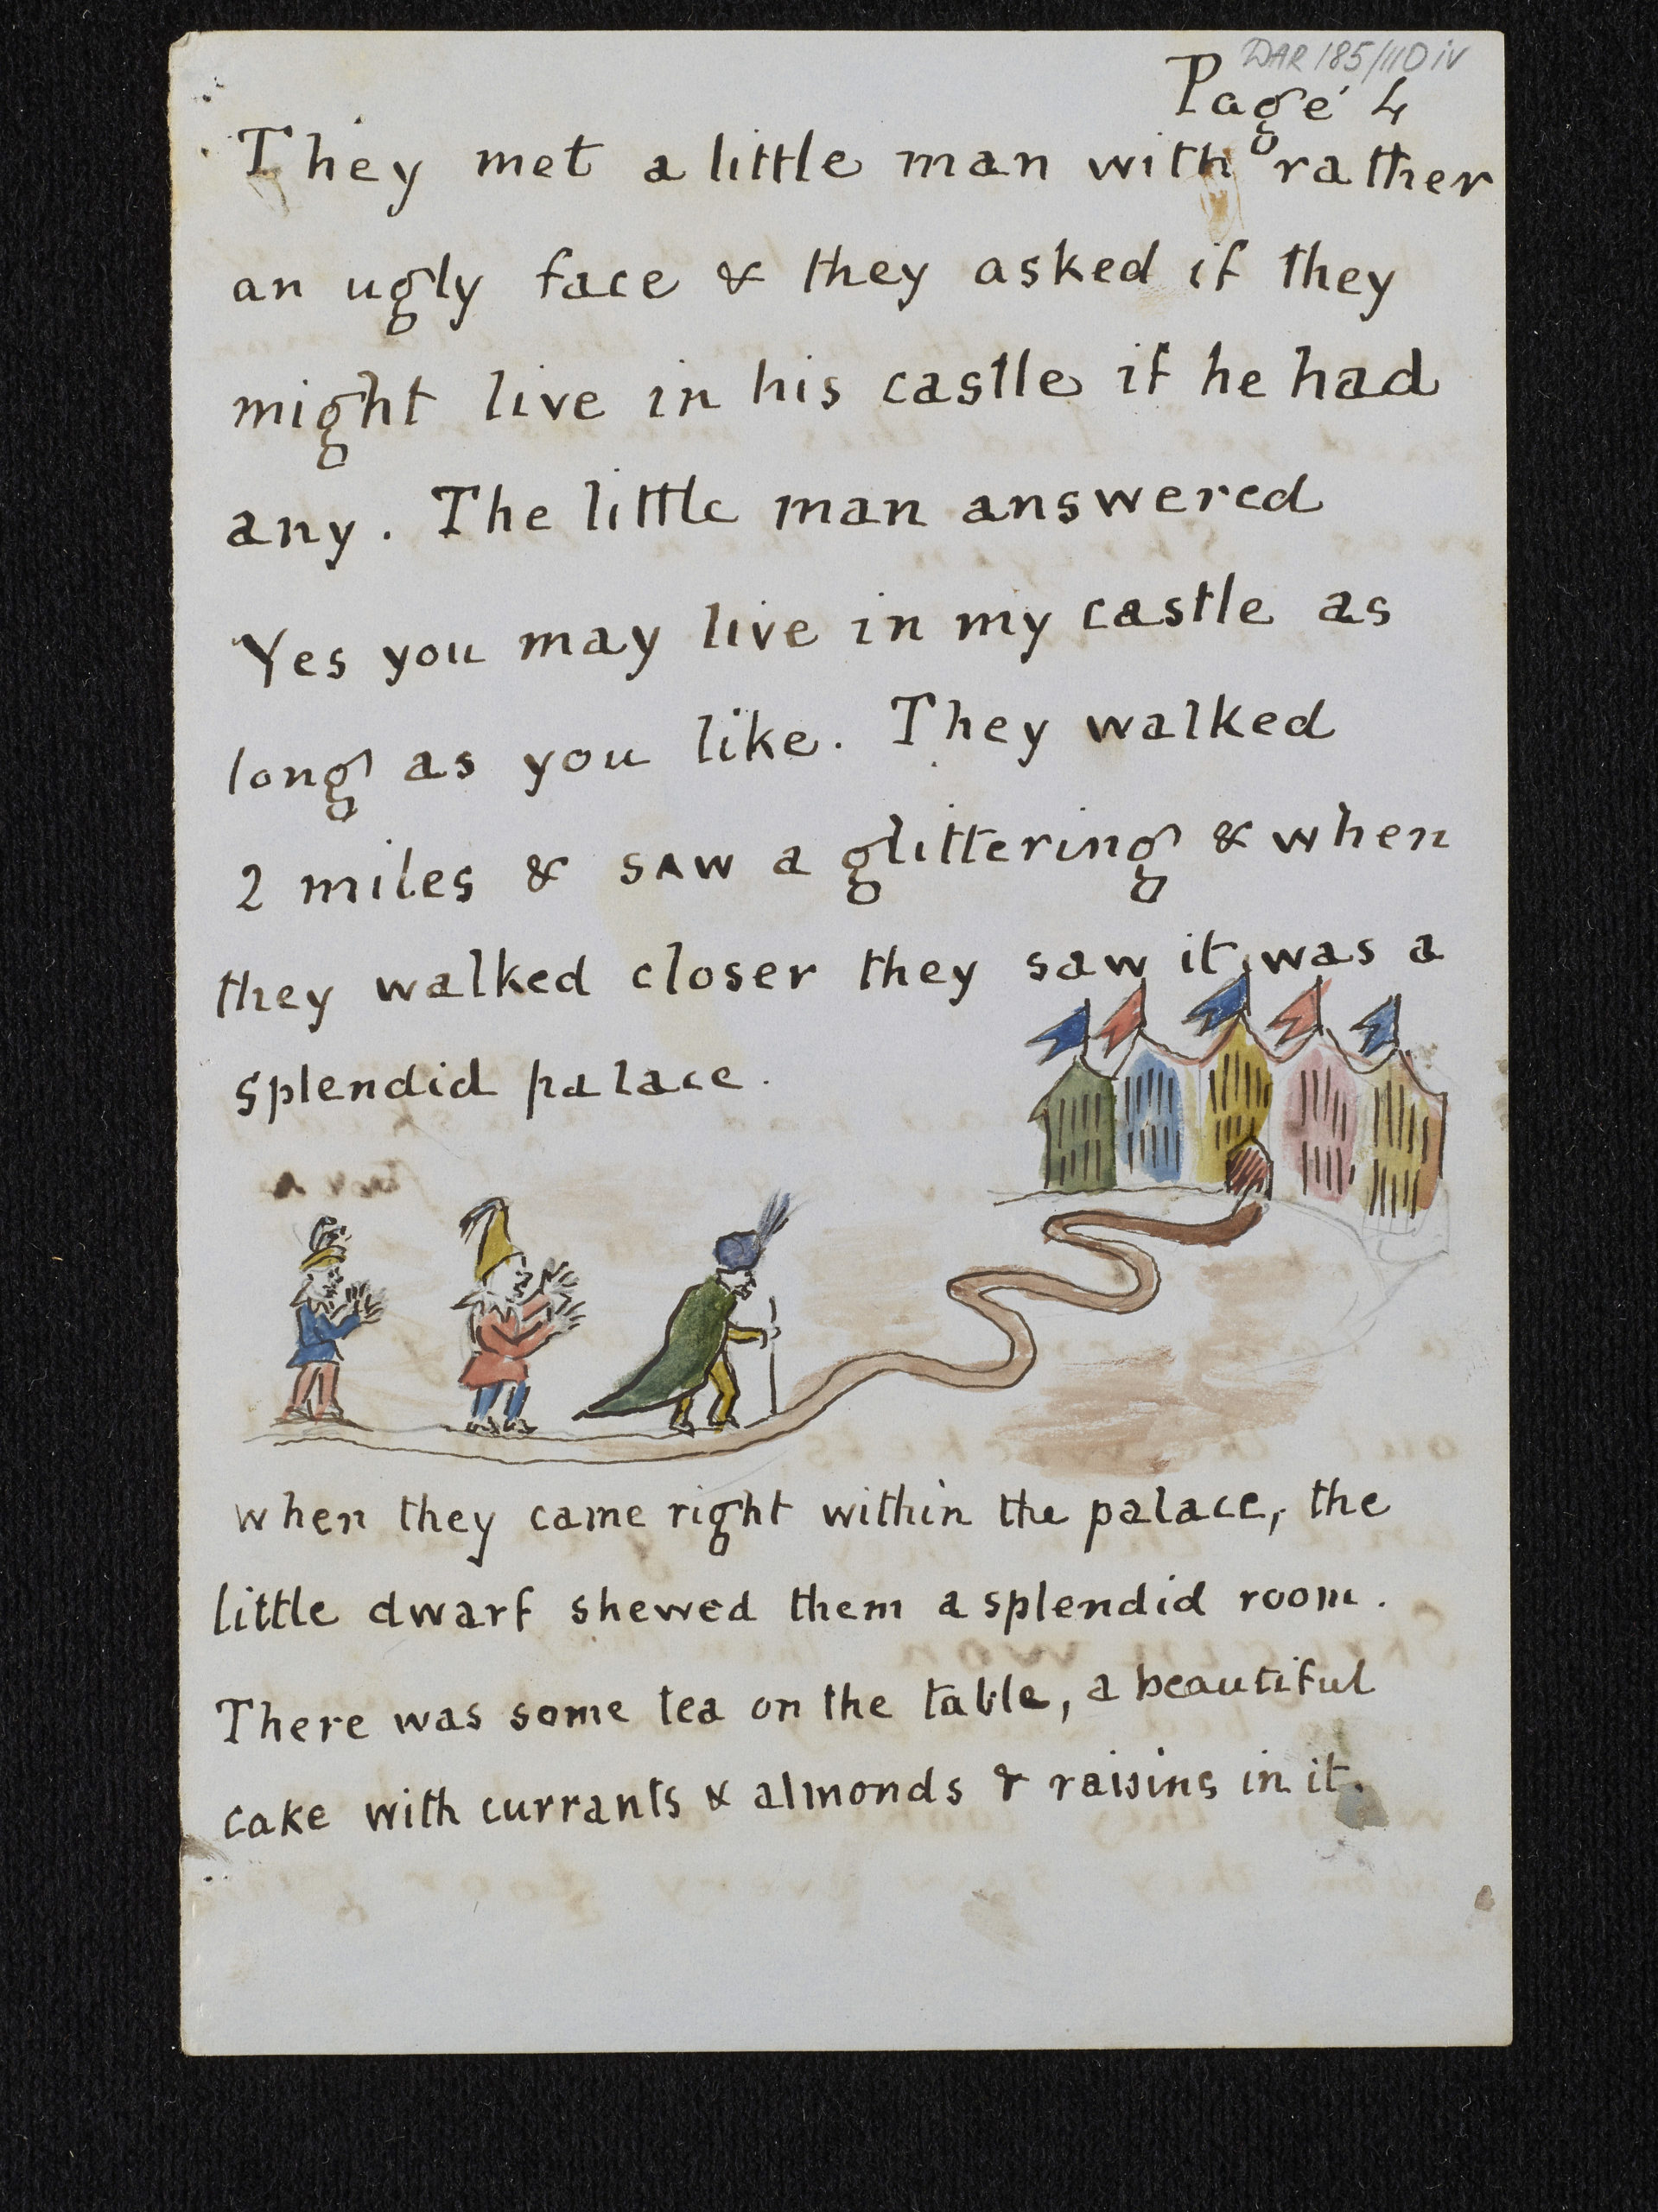 DAR 185/110 iv
Page 4
They met a little man with rather
an ugly face & they asked if they
might live in his castle if he had
any. The little man answered
Yes you may live in my castle as
long as you like. They walked
2 miles & saw a glittering & when
they walked closer they saw it was a
splendid palace.
when they came right within the palace, the
little dwarf shewed them a splendid room.
There was some tea on the table, a beautiful
cake with currants & almonds & raisins in it.